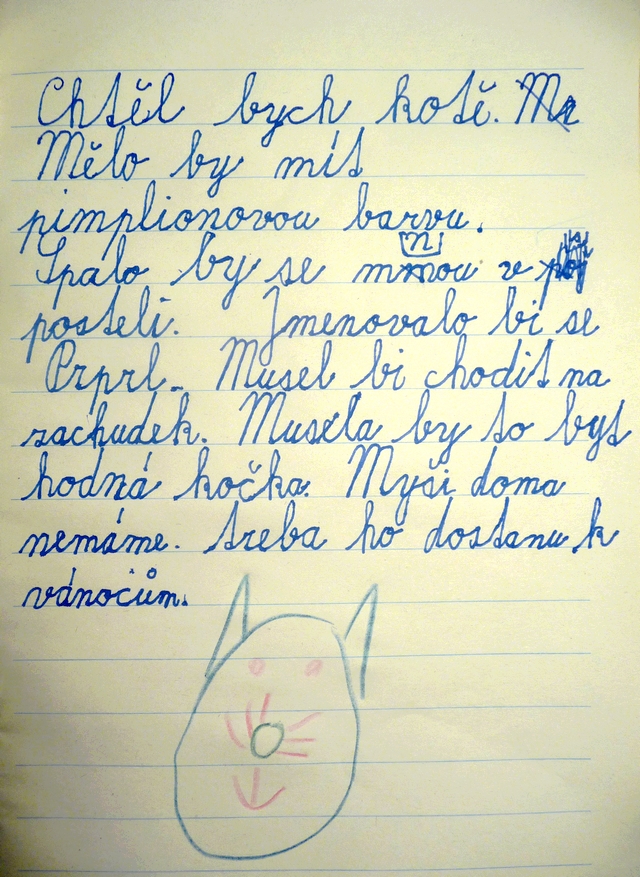 Chtěl bych kotě.
Mělo by mít
pimplionovou barvu.
Spalo by se mnou v
posteli. Jmenovalo bi se
Prprl. Musel bi chodit na
zachudek. Musela by to byt
hodná kočka. Myši doma
nemáme. treba ho dostanu k
vánocům.